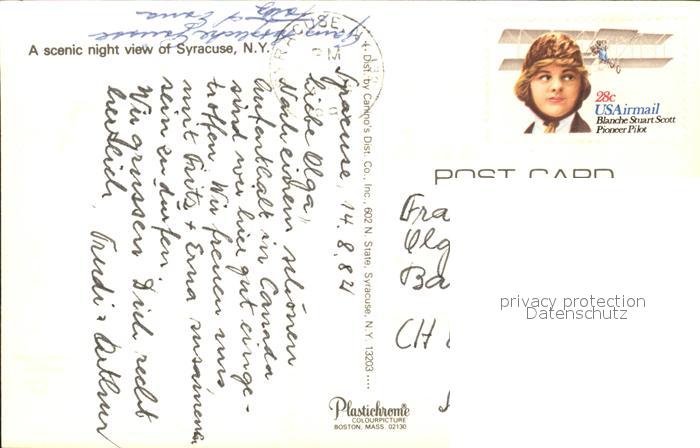 A scenic night view of Syracuse, N.Y.
Syracuse, 14. 8. 82
Liebe Olga,
Nach einem schönen
Aufenthalt in Canada
sind wir hier gut einge-
troffen. Wir freuen uns
mit Fritz + Erna zusammen
sein zu dürfen.
Wir grüssen Dich recht
herzlich, Trudi + Arthur
4. Dist. by Canino's Dist. Co., Inc., 602 N. State, Syracuse, N.Y. 13203
Plastichrome®
COLOURPICTURE
BOSTON, MASS. 02130
SYRACUSE
PM
28c
USAirmail
Blanche Stuart Scott
Pioneer Pilot
POST CARD
Fra
Olg
Ba
CH
privacy protection
Datenschutz